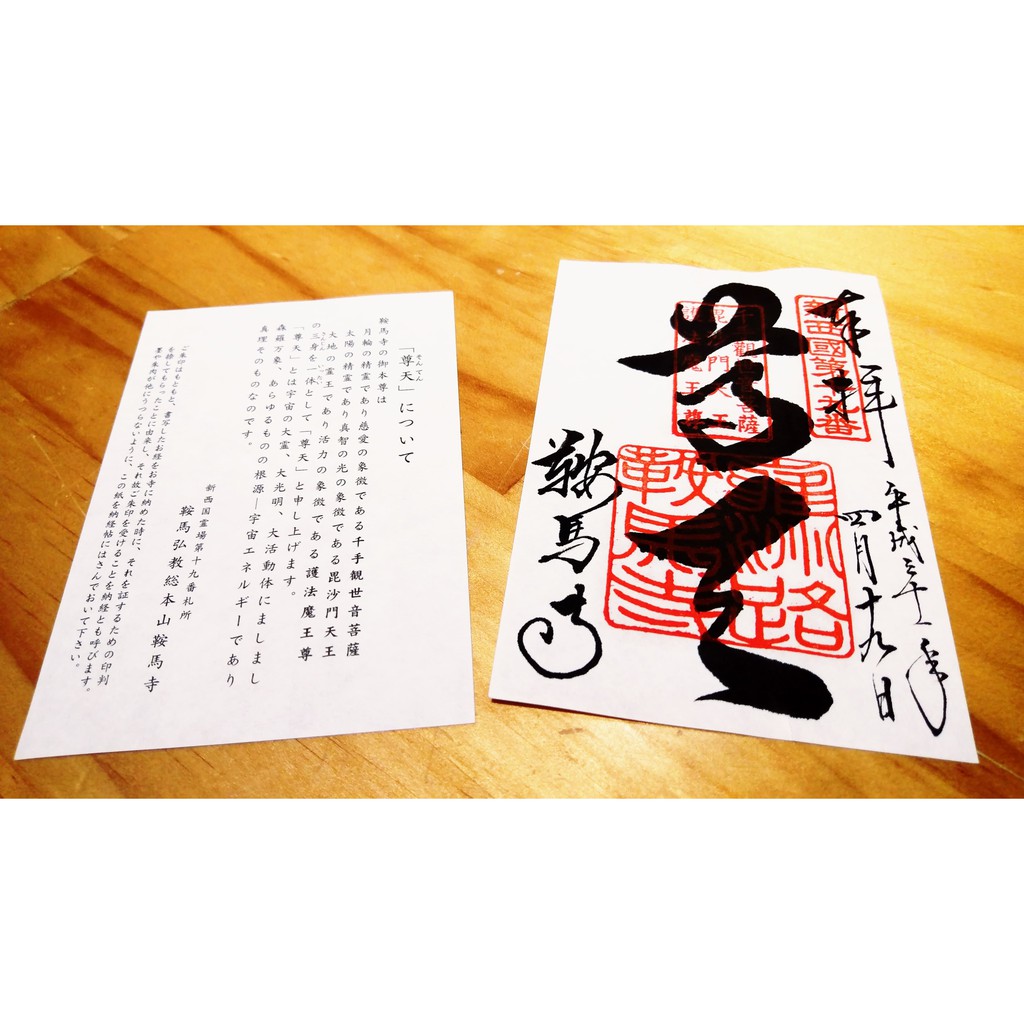 「尊天」について
そんてん
鞍馬寺の御本尊は
月輪の精霊であり慈愛の象徴である千手観世音菩薩
太陽の精霊であり真智の光の象徴である毘沙門天王
大地の霊王であり活力の象徴である護法魔王尊
の三身を一体として「尊天」と申し上げます。
さんしん
いったい
「尊天」とは宇宙の大霊、大光明、大活動体にましまし
森羅万象、あらゆるものの根源―宇宙エネルギーであり
真理そのものなのです。
新西国霊場第十九番札所
鞍馬弘教総本山鞍馬寺
ご朱印はもともと、書写したお経をお寺に納めた時に、それを証するための印判
を捺してもらったことに由来し、それ故ご朱印を受けることを納経とも呼びます。
墨や朱肉が他にうつらないように、この紙を納経帖にはさんでおいて下さい。
奉拝
平成三十年
四月十九日
新西國第十九番
尊天
鞍馬寺